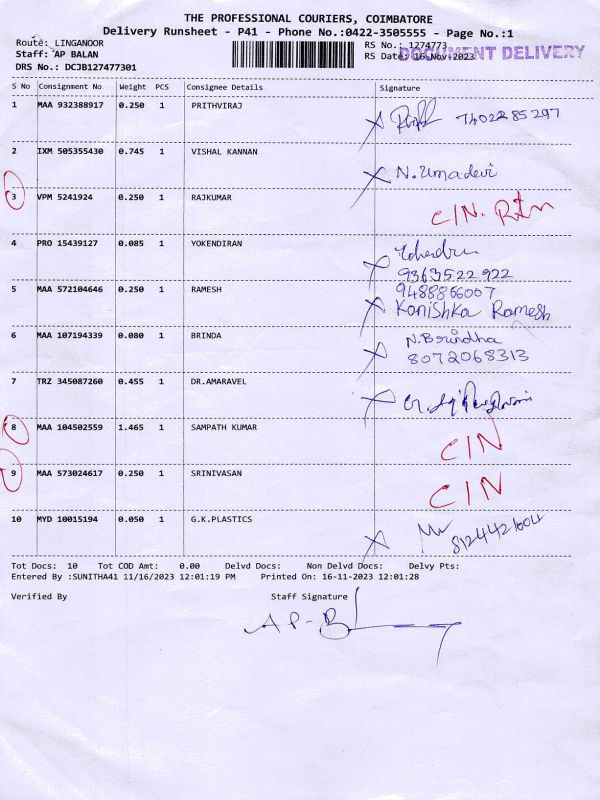 THE PROFESSIONAL COURIERS, COIMBATORE
Delivery Runsheet - P41 - Phone No.:0422-3505555 - Page No.:1
Route: LINGANOOR RS No.: 1274773
Staff: AP BALAN RS Date: 16-Nov-2023 DOCUMENT DELIVERY
DRS No.: DCJB127477301
S No Consignment No Weight PCS Consignee Details Signature
1 MAA 932388917 0.250 1 PRITHVIRAJ 7402285297
2 IXM 505355430 0.745 1 VISHAL KANNAN N. Umadevi
3 VPM 5241924 0.250 1 RAJKUMAR C/N. Rtn
4 PRO 15439127 0.085 1 YOKENDIRAN
9363522922
5 MAA 572104646 0.250 1 RAMESH 9488866007
Kanishka Ramesh
6 MAA 107194339 0.080 1 BRINDA N. Brindha
8072068313
7 TRZ 345087260 0.455 1 DR.AMARAVEL
8 MAA 104502559 1.465 1 SAMPATH KUMAR C/N
9 MAA 573024617 0.250 1 SRINIVASAN C/N
10 MYD 10015194 0.050 1 G.K.PLASTICS 8124421604
Tot Docs: 10 Tot COD Amt: 0.00 Delvd Docs: Non Delvd Docs: Delvy Pts:
Entered By :SUNITHA41 11/16/2023 12:01:19 PM Printed On: 16-11-2023 12:01:28
Verified By Staff Signature